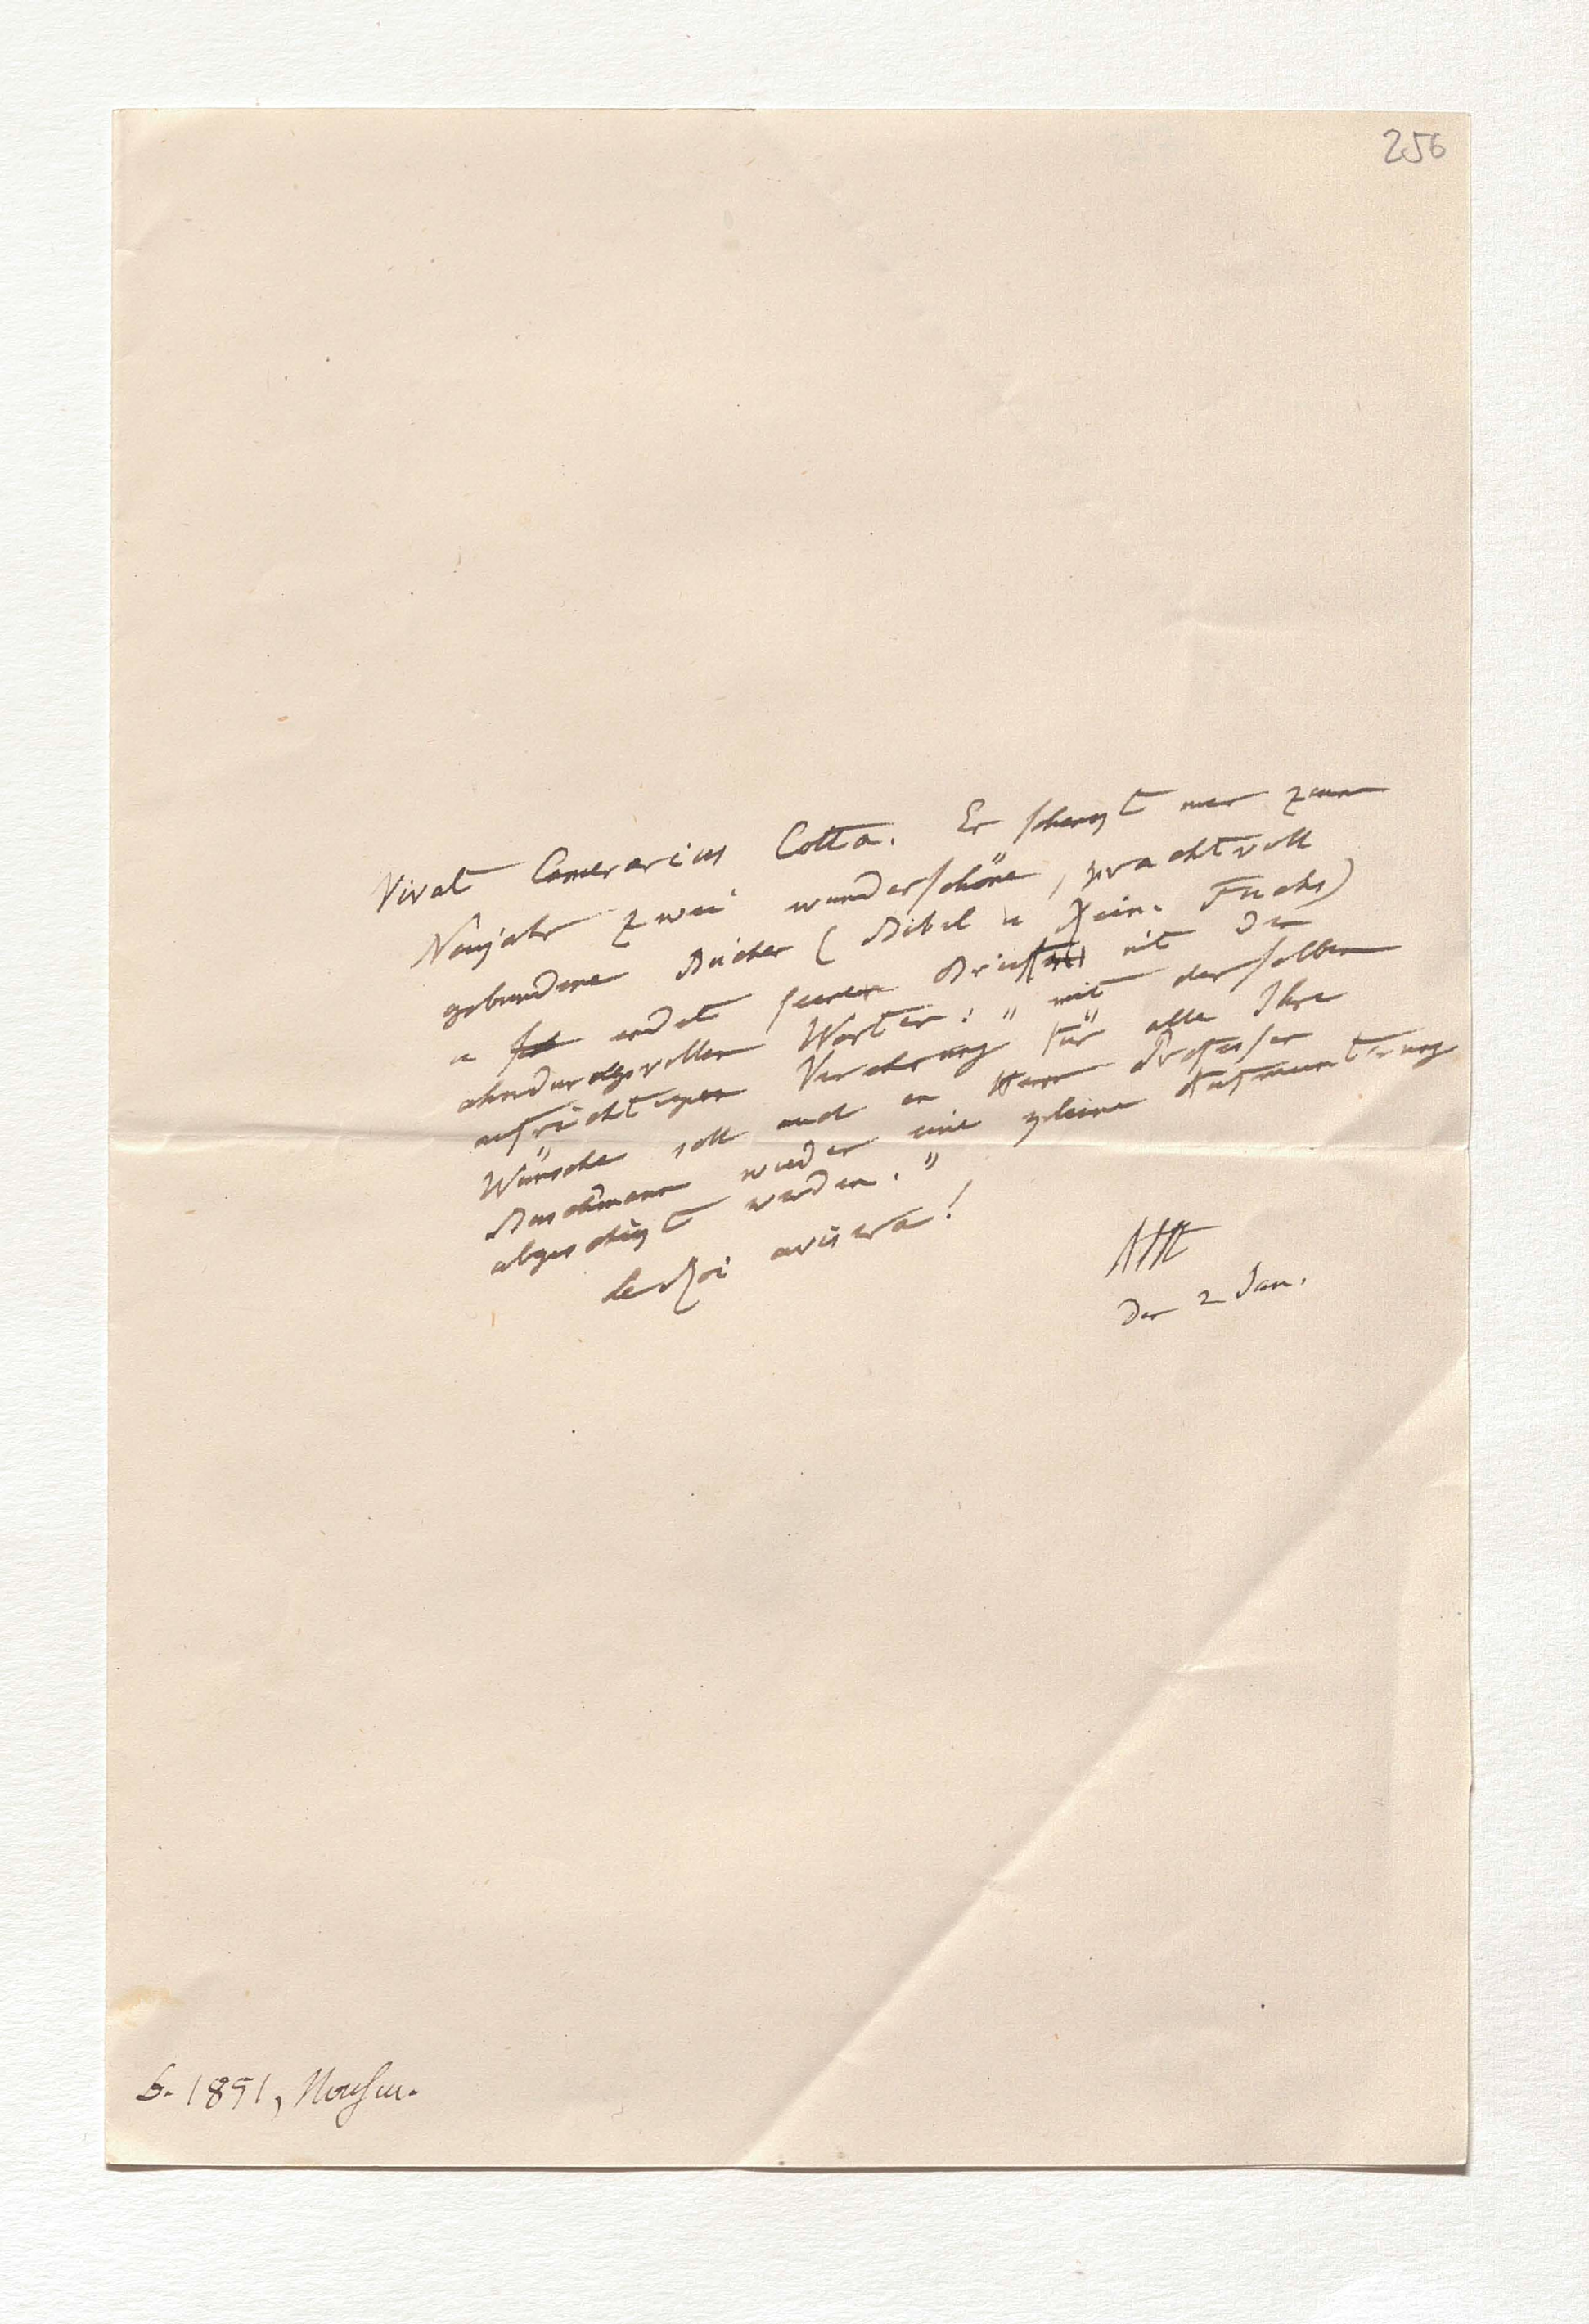 256
Vivat Camerarius Cotta. Er schenkt mir zum
Neujahr zwei wunderschöne, prachtvoll
gebundene Bücher (Bibel u Rein. Fuchs)
u endet seinen Brief mit den
ahndungsvollen Worten: „mit derselben
aufrichtigen Verehrung für alle Ihre
Wünsche soll auch an Herrn Professor
Buschmann wieder eine kleine Aufmunterung
abgeschikt werden."
le Roi avisera!
AHt
den 2 Jan.
b. 1851,